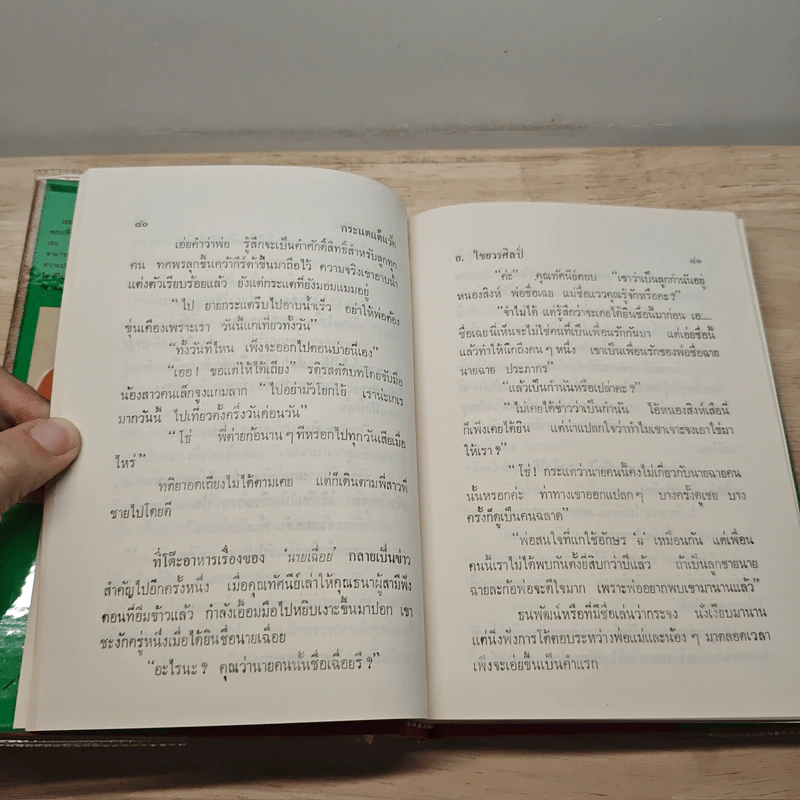 ๔๐
กระแตแต้แว้ด
เอ่ยคำว่าพ่อ รู้สึกจะเป็นคำศักดิ์สิทธิ์สำหรับลูกทุก
คน ทศพรลุกขึ้นคว้ากีร์ต้าขึ้นมาถือไว้ ความจริงเขาอาบน้ำ
แต่งตัวเรียบร้อยแล้ว ยังแต่กระแตที่ยังมอมแมมอยู่
“ไป ยายกระแตรีบไปอาบน้ำเร็ว อย่าให้พ่อต้อง
ขุ่นเคืองเพราะเรา วันนี้แกเที่ยวทั้งวัน”
“ทั้งวันที่ไหน เพิ่งจะออกไปตอนบ่ายนี่เอง”
“เออ! ขอแต่ให้ได้เถียง” รติรสตัดบทโดยจับมือ
น้องสาวคนเล็กจูงแกมลาก “ไปอย่ามัวโยกโย้ เรานะเกเร
มากวันนี้ ไปเที่ยวตั้งครึ่งวันค่อนวัน”
“โธ่ พี่ต่ายก้อนาน ๆ ทีหรอกไปทุกวันเสียเมื่อ
ไหร่”
ทติยาอดเถียงไม่ได้ตามเคย แต่ก็เดินตามพี่สาวพี่
ชายไปโดยดี
ที่โต๊ะอาหารเรื่องของ ‘นายเฉื่อย’ กลายเป็นข่าว
สำคัญไปอีกครั้งหนึ่ง เมื่อคุณทัศนีย์เล่าให้คุณธนาผู้สามีฟัง
ตอนที่อิ่มข้าวแล้ว กำลังเอื้อมมือไปหยิบเงาะขึ้นมาปอก เขา
ชะงักครู่หนึ่งเมื่อได้ยินชื่อนายเฉื่อย
“อะไรนะ ? คุณว่านายคนนั้นชื่อเฉื่อยรึ ?”
อ. ไชยวรศิลป์
๔๑
“ค่ะ” คุณทัศนีย์ตอบ “เขาว่าเป็นลูกกำนันอยู่
หนองสิงห์ พ่อชื่อเฉย แม่ชื่อแววคุณรู้จักหรือคะ ?”
“จำไม่ได้ แต่รู้สึกว่าจะเคยได้ยินชื่อนี้มาก่อน เอ....
ชื่อเฉยนี่เห็นจะไม่ใช่คนที่เป็นเพื่อนรักกันมา แต่เอ่ยชื่อนี้
แล้วทำให้นึกถึงคน ๆ หนึ่ง เขาเป็นเพื่อนรักของพ่อชื่อฉาย
นายฉาย ประภากร”
“แล้วเป็นกำนันหรือเปล่าคะ ?”
“ไม่เคยได้ข่าวว่าเป็นกำนัน ไอ้หนองสิงห์เสือนี่
ก็เพิ่งเคยได้ยิน แต่น่าแปลกใจว่าทำไมเขาเจาะจงเอาไข่มา
ให้เรา ?”
“โธ่! กระแตว่านายคนนี้คงไม่เกี่ยวกับนายฉายคน
นั้นหรอกค่ะ ท่าทางเขาออกแปลก ๆ บางครั้งดูเชย บาง
ครั้งก็ดูเป็นคนฉลาด”
“พ่อสนใจที่แกใช้อักษร ‘ฉ’ เหมือนกัน แต่เพื่อน
คนนี้เราไม่ได้พบกันตั้งยี่สิบกว่าปีแล้ว ถ้าเป็นลูกชายนาย
ฉายละก้อพ่อจะดีใจมาก เพราะพ่ออยากพบเขามานานแล้ว”
ธนพัฒน์หรือที่มีชื่อเล่นว่ากระจง นั่งเงียบมานาน
แต่นั่งฟังการโต้ตอบระหว่างพ่อแม่และน้อง ๆ มาตลอดเวลา
เพิ่งจะเอ่ยขึ้นเป็นคำแรก